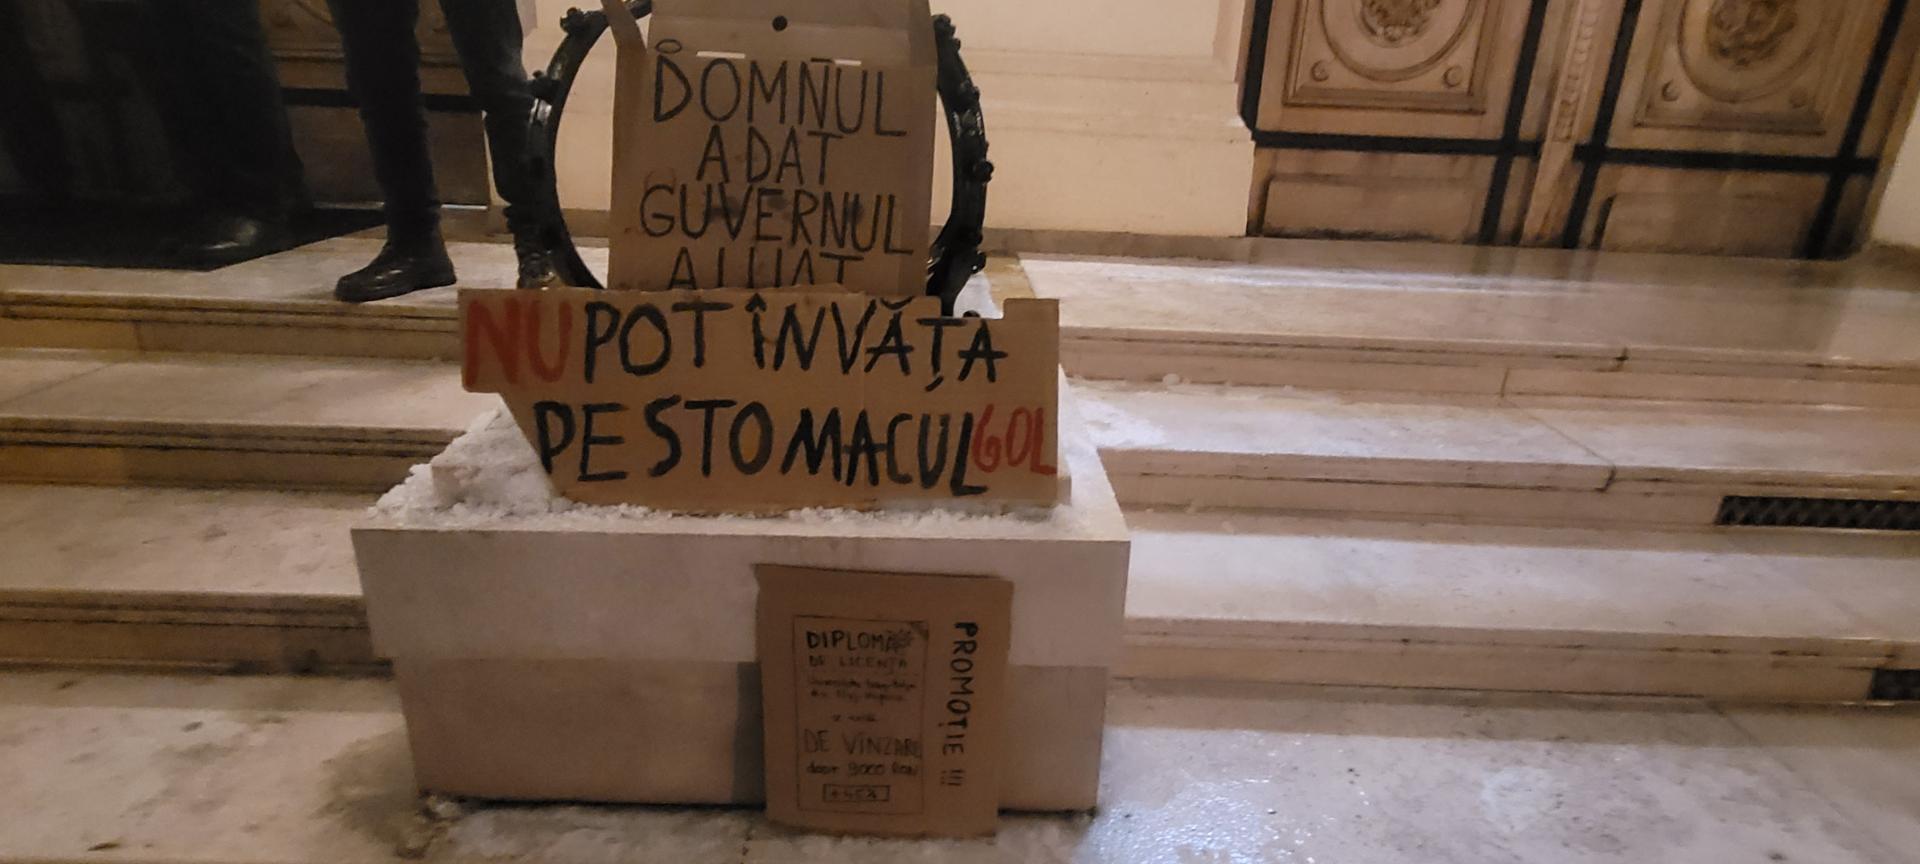 DOMNUL
A DAT
GUVERNUL
A LUAT
NU POT ÎNVĂȚA
PE STOMACUL GOL
DIPLOMĂ
DE LICENȚĂ
DE VÎNZARE
doar 9000 RON
PROMOȚIE !!!